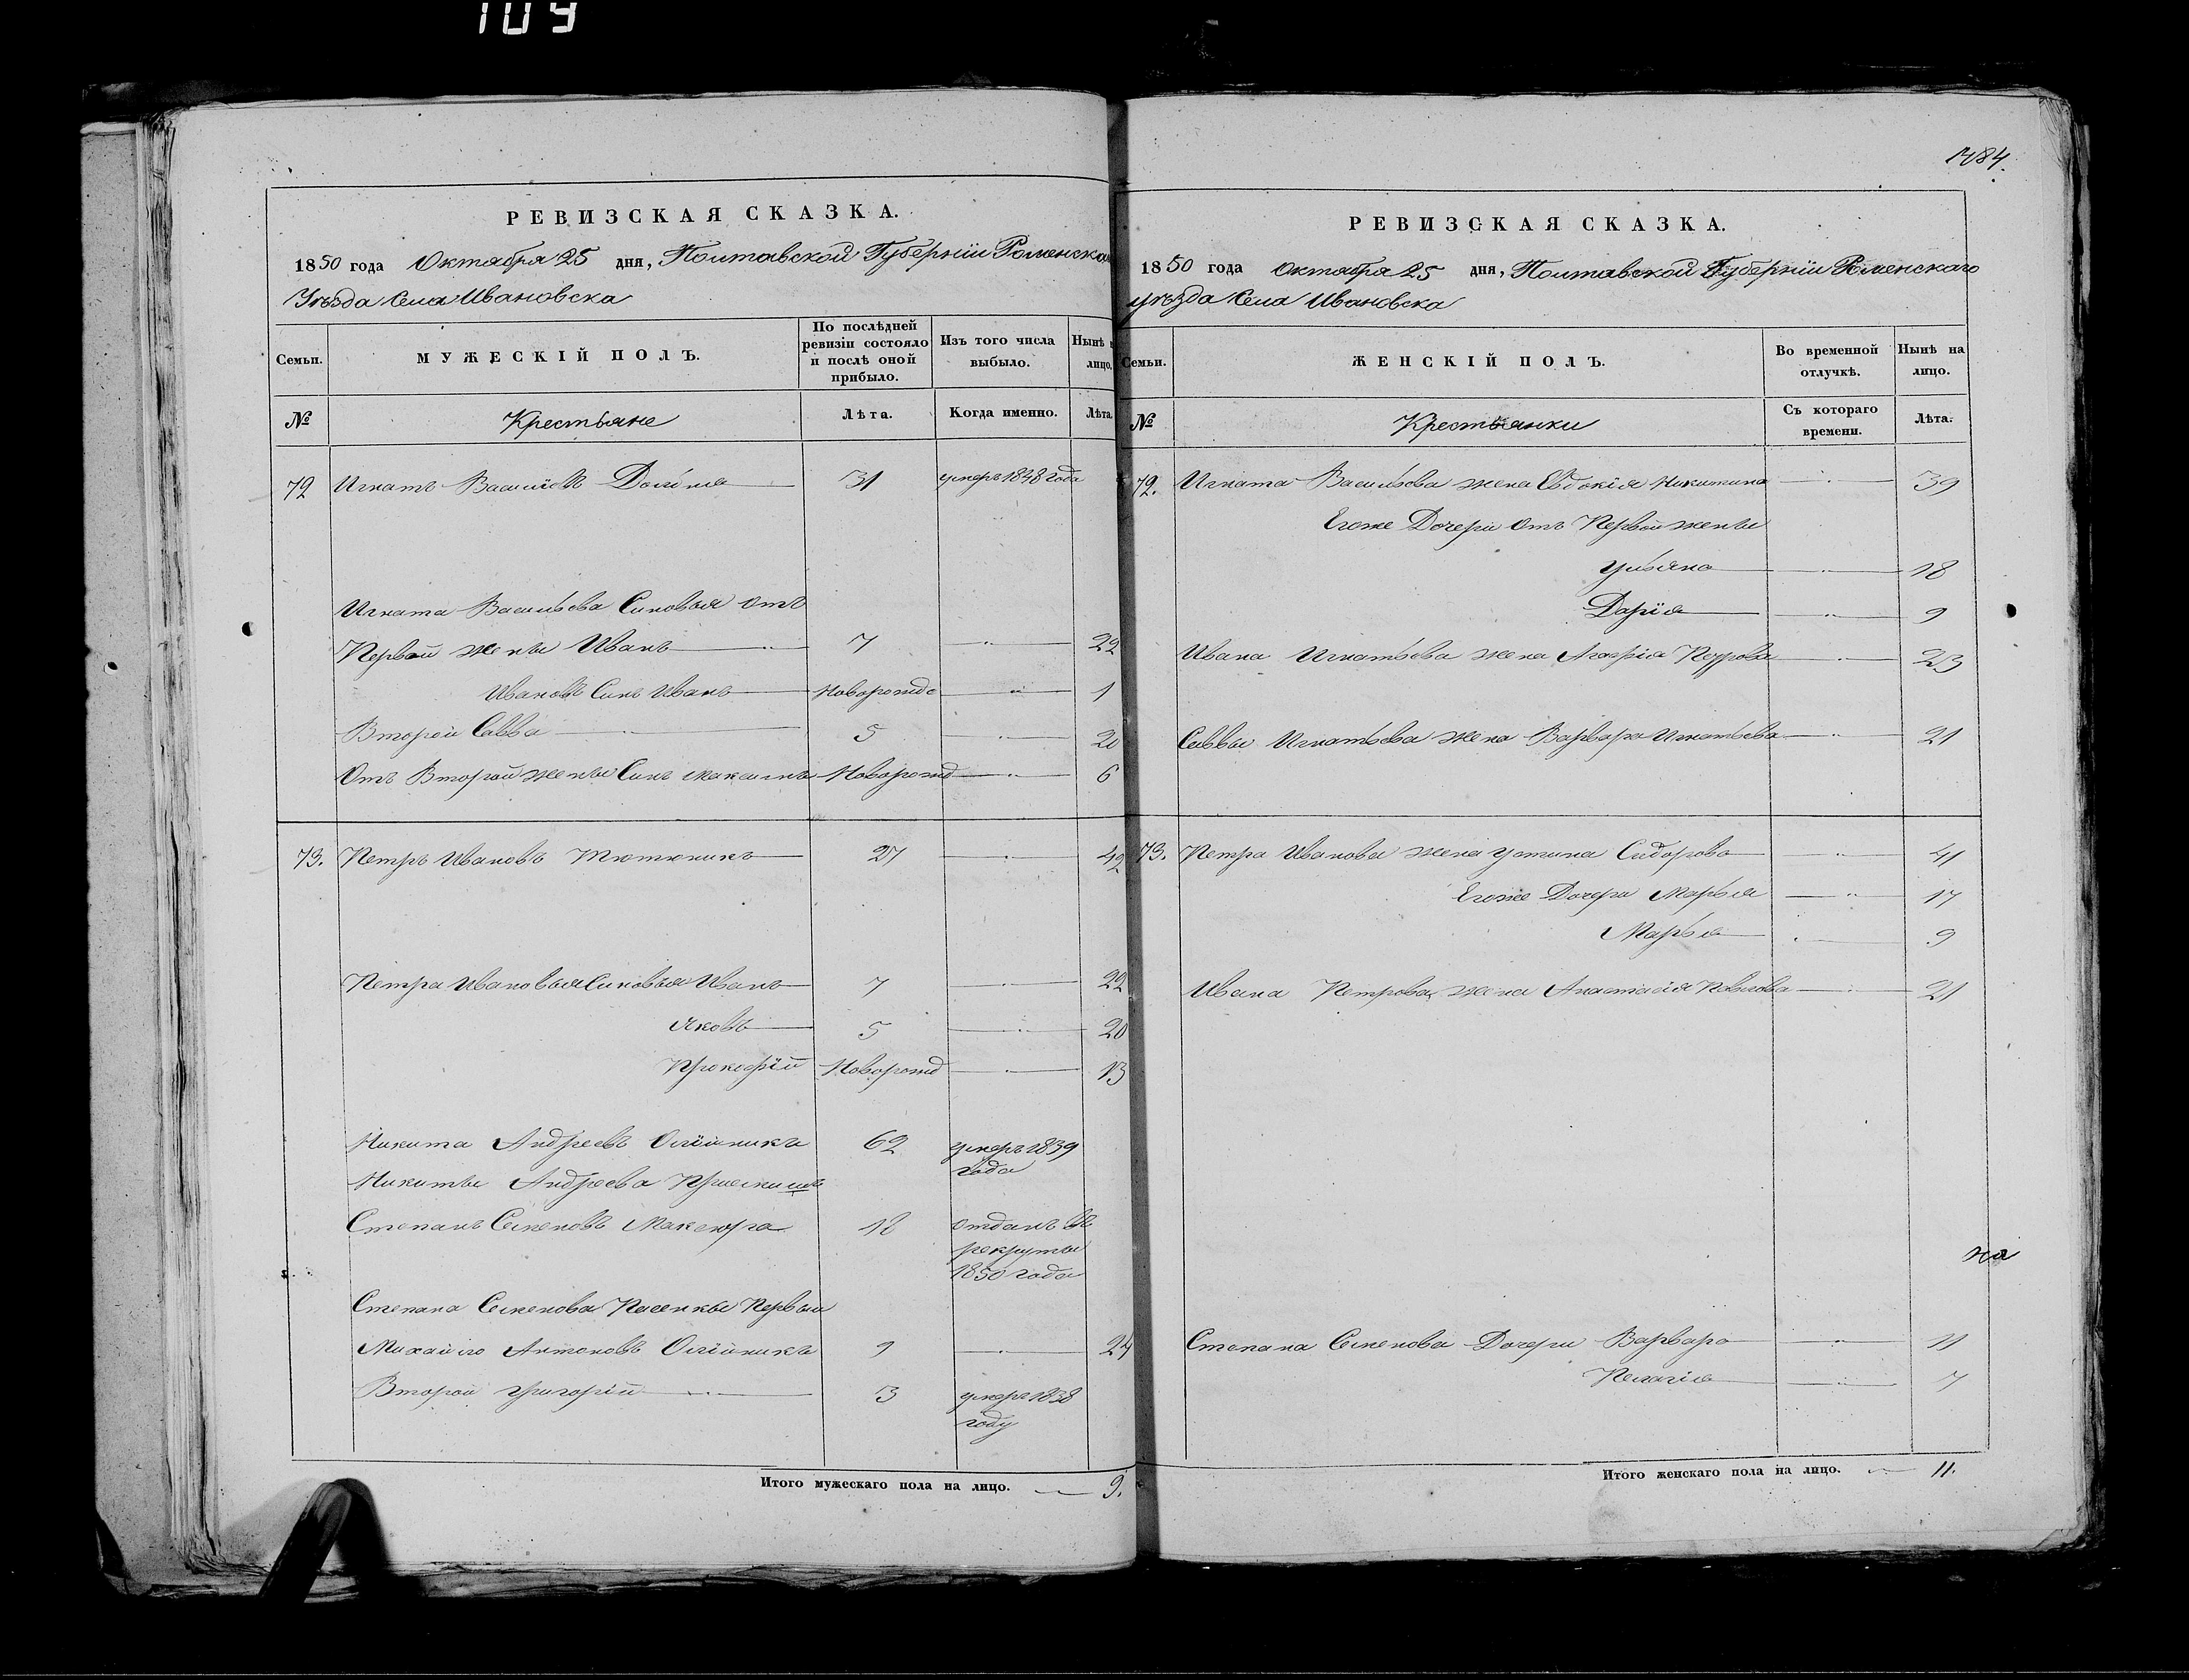 109
РЕВИЗСКАЯ СКАЗКА.
1850 года Октября 25 дня, Полтавской Губерніи Роменска
Уѣзда Села Ивановска
Семьи. МУЖЕСКІЙ ПОЛЪ. По послѣдней ревизіи состояло и послѣ оной прибыло. Изъ того числа выбыло. Нынѣ на лицо.
№ Крестьяне Лѣта. Когда именно. Лѣта.
72 Игнатъ Васильевъ 31 умеръ 1848 года
Игната Васильева Сыновья отъ
Первой жены Иванъ 7 22
Ивановъ Сынъ Иванъ Новорожде 1
Второй Савва 5 20
Отъ Второй жены Сынъ Максимъ Новорожд 6
73. Петръ Ивановъ Тютюникъ 27 42
Петра Ивановыя Сыновья Иванъ 7 22
Яковъ 5 20
Прокофій Новорожд 13
Никита Андреевъ Олійникъ 62 умеръ 1839 года
Никиты Андреева
Степанъ Семеновъ 18 отданъ въ рекруты 1850 года
Степана Семенова Первый
Михайло Антоновъ Олійникъ 9 24
Второй Григорій 3 умеръ 1838 году
Итого мужескаго пола на лицо. 9.
1484.
РЕВИЗСКАЯ СКАЗКА.
1850 года Октября 25 дня, Полтавской Губерніи Роменскаго
уѣзда Села Ивановска
Семьи. ЖЕНСКІЙ ПОЛЪ. Во временной отлучкѣ. Нынѣ на лицо.
№ Крестьянки Съ котораго времени. Лѣта.
72. Игната Васильева жена Евдокія Никитина 39
Егоже Дочери отъ Первой жены
Ульяна 18
Дарія 9
Ивана Игнатьева жена Агафія 23
Саввы Игнатьева жена Варвара Игнатьева 21
73. Петра Иванова жена Устина Сидорова 41
Егоже Дочери Марья 17
Марья 9
Ивана Петрова жена Анастасія Павлова 21
на
Степана Семенова Дочери Варвара 11
Пелагія 7
Итого женскаго пола на лицо. 11.